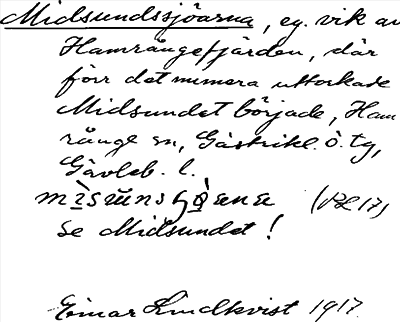 Midsundssjöarna, eg. vik av
Hamrångefjärden, där
förr det numera uttorkade
Midsundet började, Ham
rånge sn, Gästrikl. ö. tg,
Gävleb. l.
Se Midsundet!
Einar Lindkvist 1917